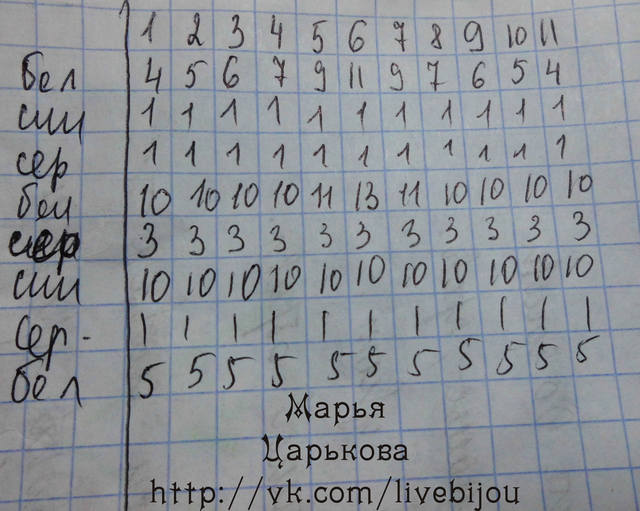 1 2 3 4 5 6 7 8 9 10 11
бел 4 5 6 7 9 11 9 7 6 5 4
син 1 1 1 1 1 1 1 1 1 1 1
сер 1 1 1 1 1 1 1 1 1 1 1
бел 10 10 10 10 11 13 11 10 10 10 10
сер 3 3 3 3 3 3 3 3 3 3 3
син 10 10 10 10 10 10 10 10 10 10 10
сер - 1 1 1 1 1 1 1 1 1 1 1
бел 5 5 5 5 5 5 5 5 5 5 5
Марья
Царькова
http://vk.com/livebijou